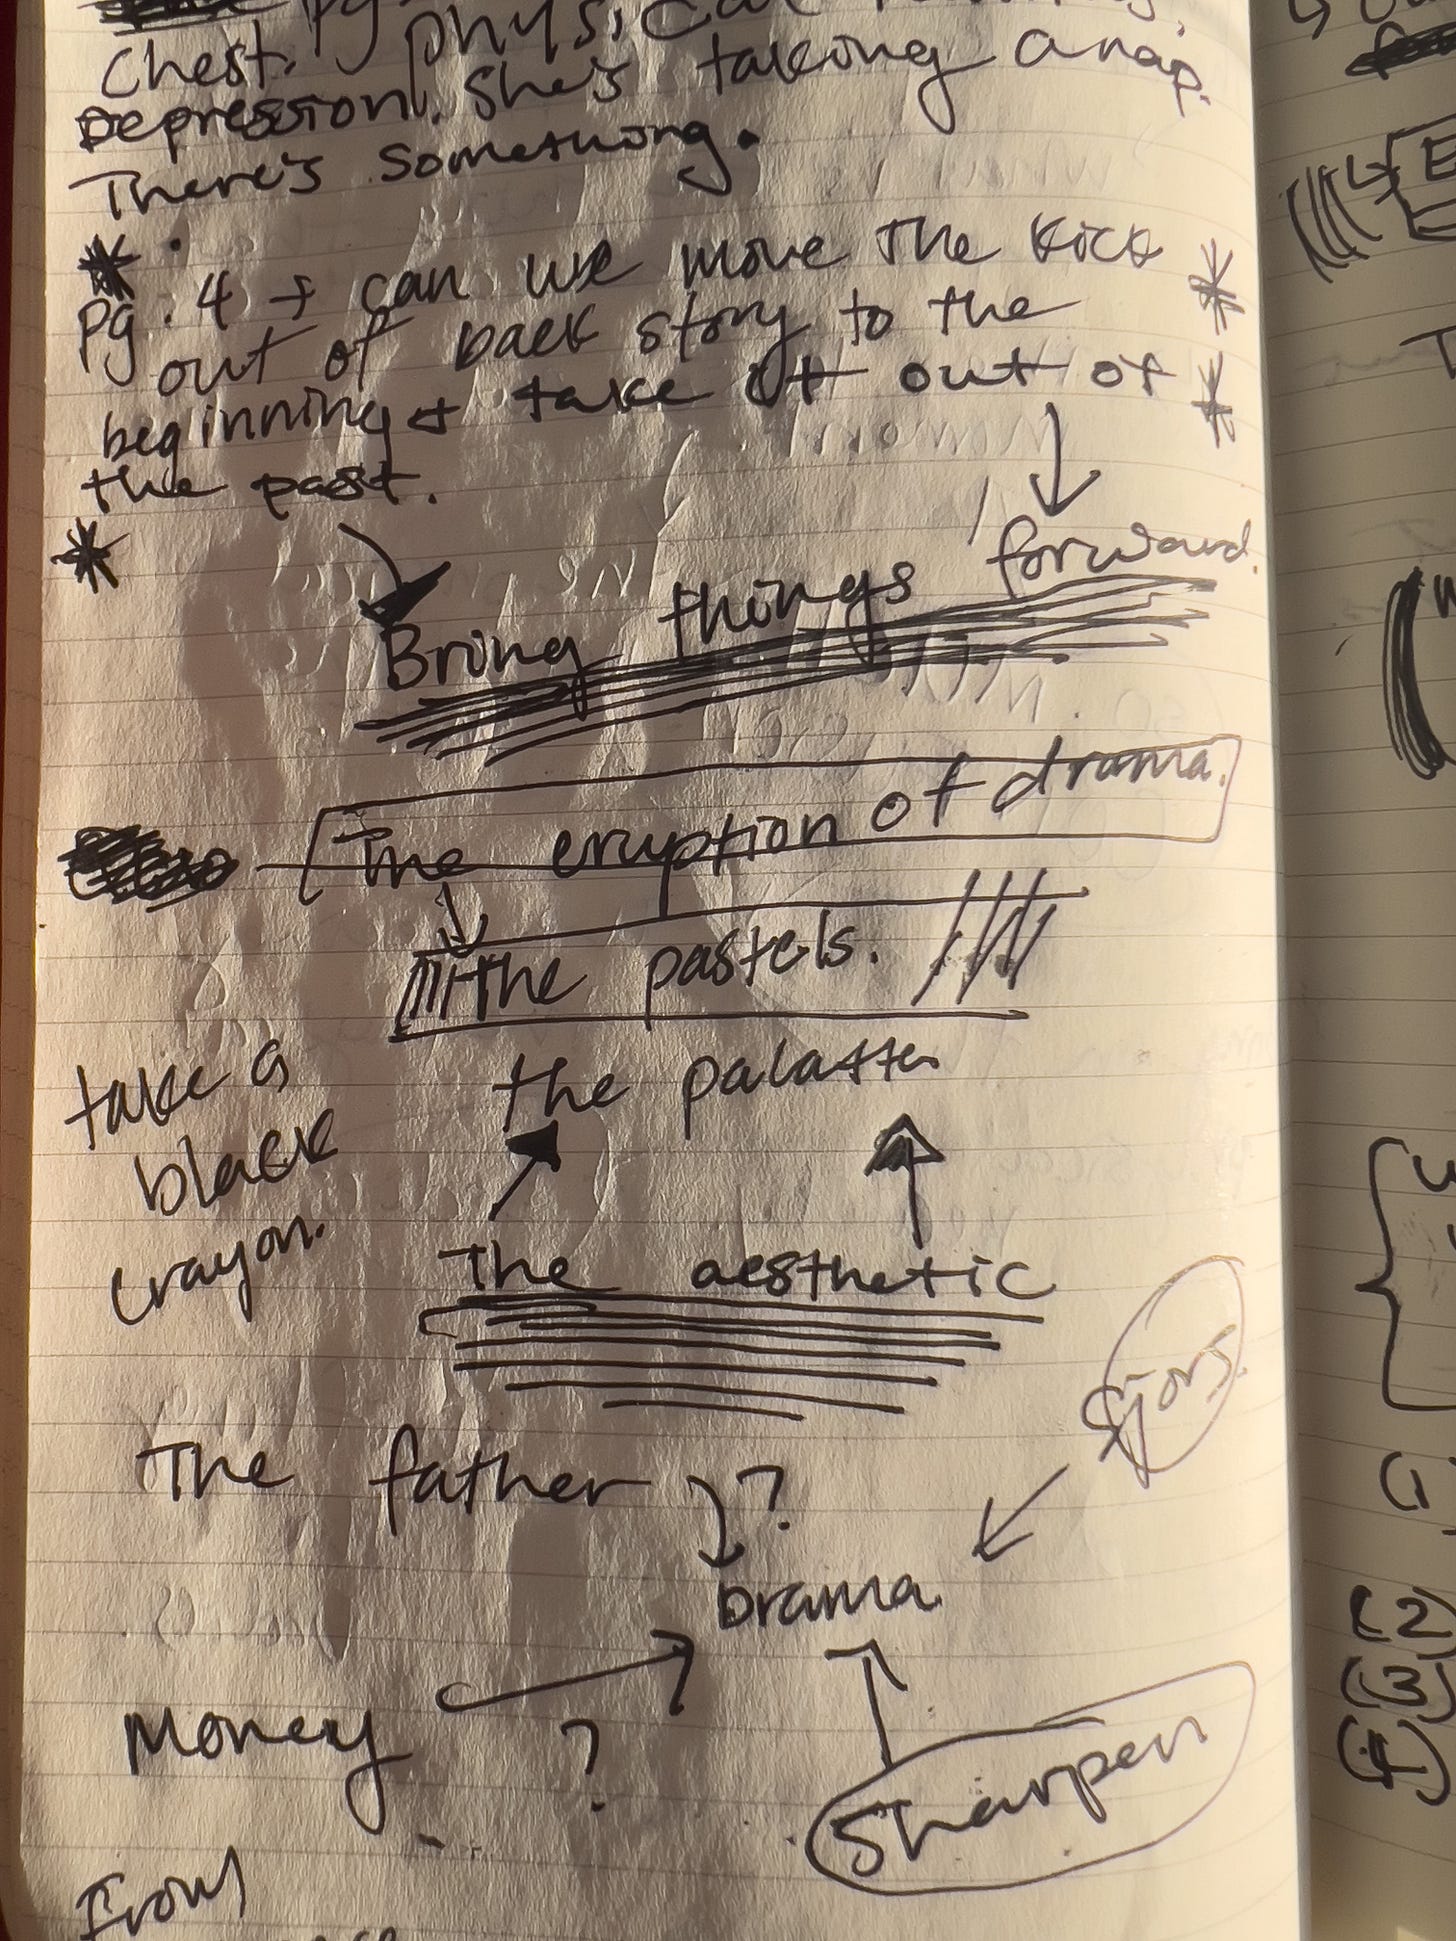 pg physical
Chest.
Depression. She's taking a nap.
There's something.
pg. 4 → can we move the kick
out of back story to the
beginning + take it out of
the past.
Bring things forward.
The eruption of drama.
The pastels.
the palatte
take a
black
crayon.
The aesthetic
The father ?
Drama
Money
?
Sharpen
From
E
(2)
(3)
(4)